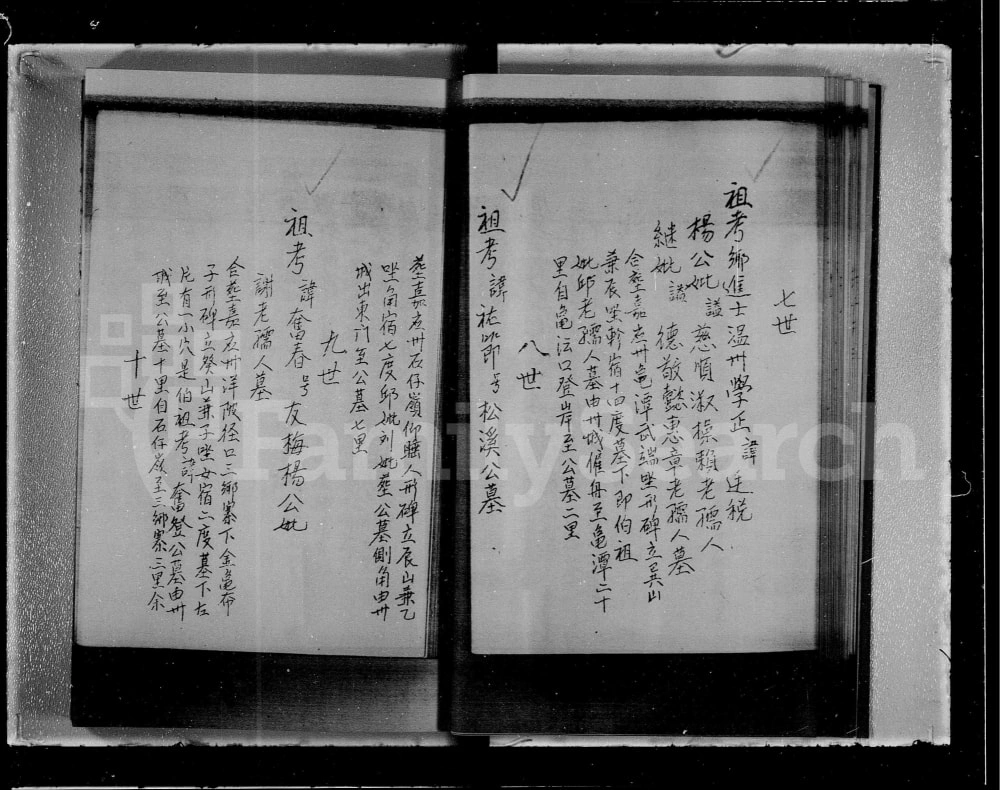 七世
祖考鄉進士温州學正諱廷税
楊公妣謚慈順淑操賴老孺人
継妣謚德敬懿惠章老孺人墓
仝塟嘉志州龟潭武端坐形碑立巽山
兼辰坐軫宿十四度墓下即伯祖
妣邱老孺人墓由州城催舟至龟潭二十
里自龟沄口登岸至公墓二里
八世
祖考諱祐節号松溪公墓
塟嘉應州石仔嶺仰睡人形碑立辰山兼乙
坐角宿七度邱妣刘妣塟公墓側角由州
城出東门至公墓七里
九世
祖考諱奮春号友梅楊公妣
謝老孺人墓
仝塟嘉應州洋陂径口三鄉寨下金龟布
子形碑立癸山兼子坐女宿二度墓下左
片有一小穴是伯祖考諱奮登公墓由州
城至公墓十里自石仔嶺至三鄉寨三里余
十世
FamilySearch